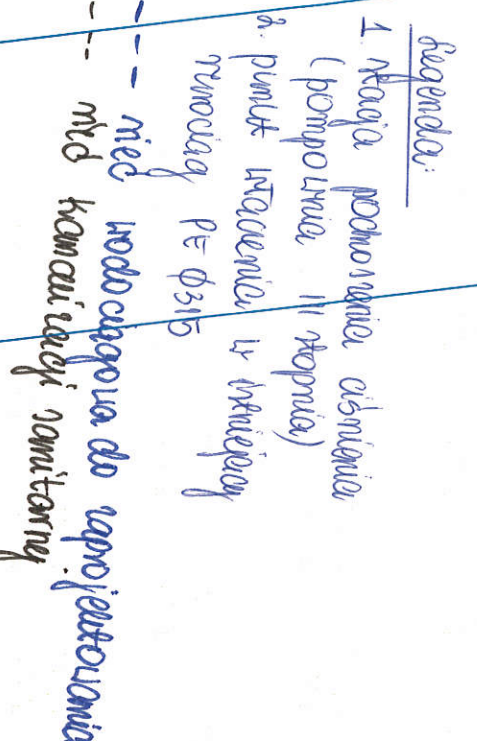 Legenda:
1. stacja podnoszenia ciśnienia
(pompownia III stopnia)
2. punkt włączenia w istniejący
rurociąg PE ϕ315
--- sieć wodociągowa do zaprojektowania
--- sieć kanalizacji sanitarnej